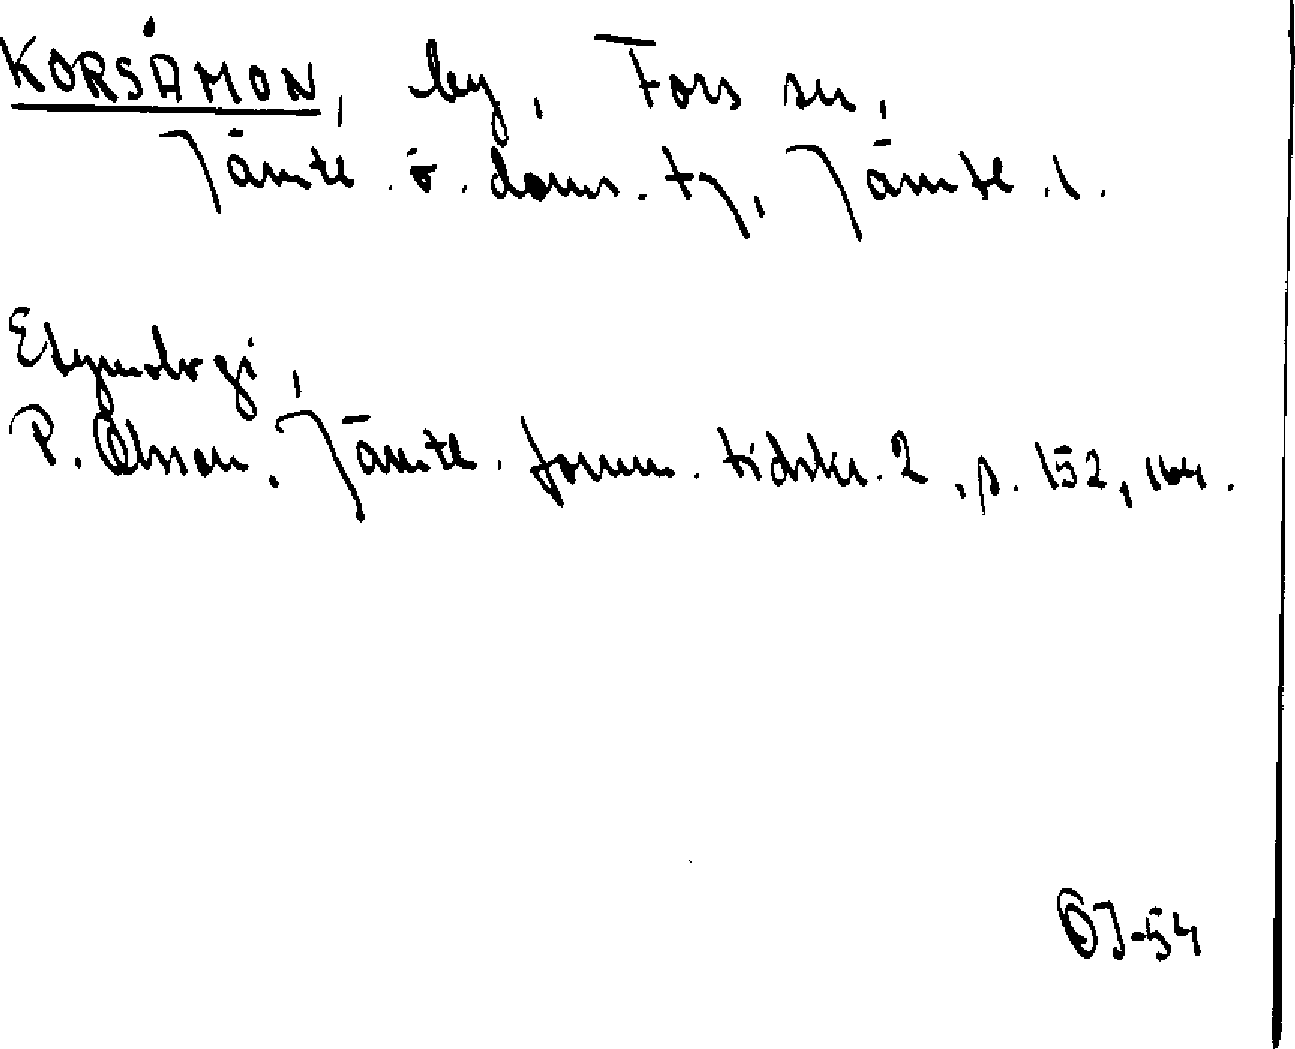 KORSÅMON, by, Fors sn,
Jämtl. ö. doms. tg, Jämtl. l.
Etymologi,
P. Olsson, Jämtl. fornm. tidskr. 2, s. 152, 164.
OJ-54